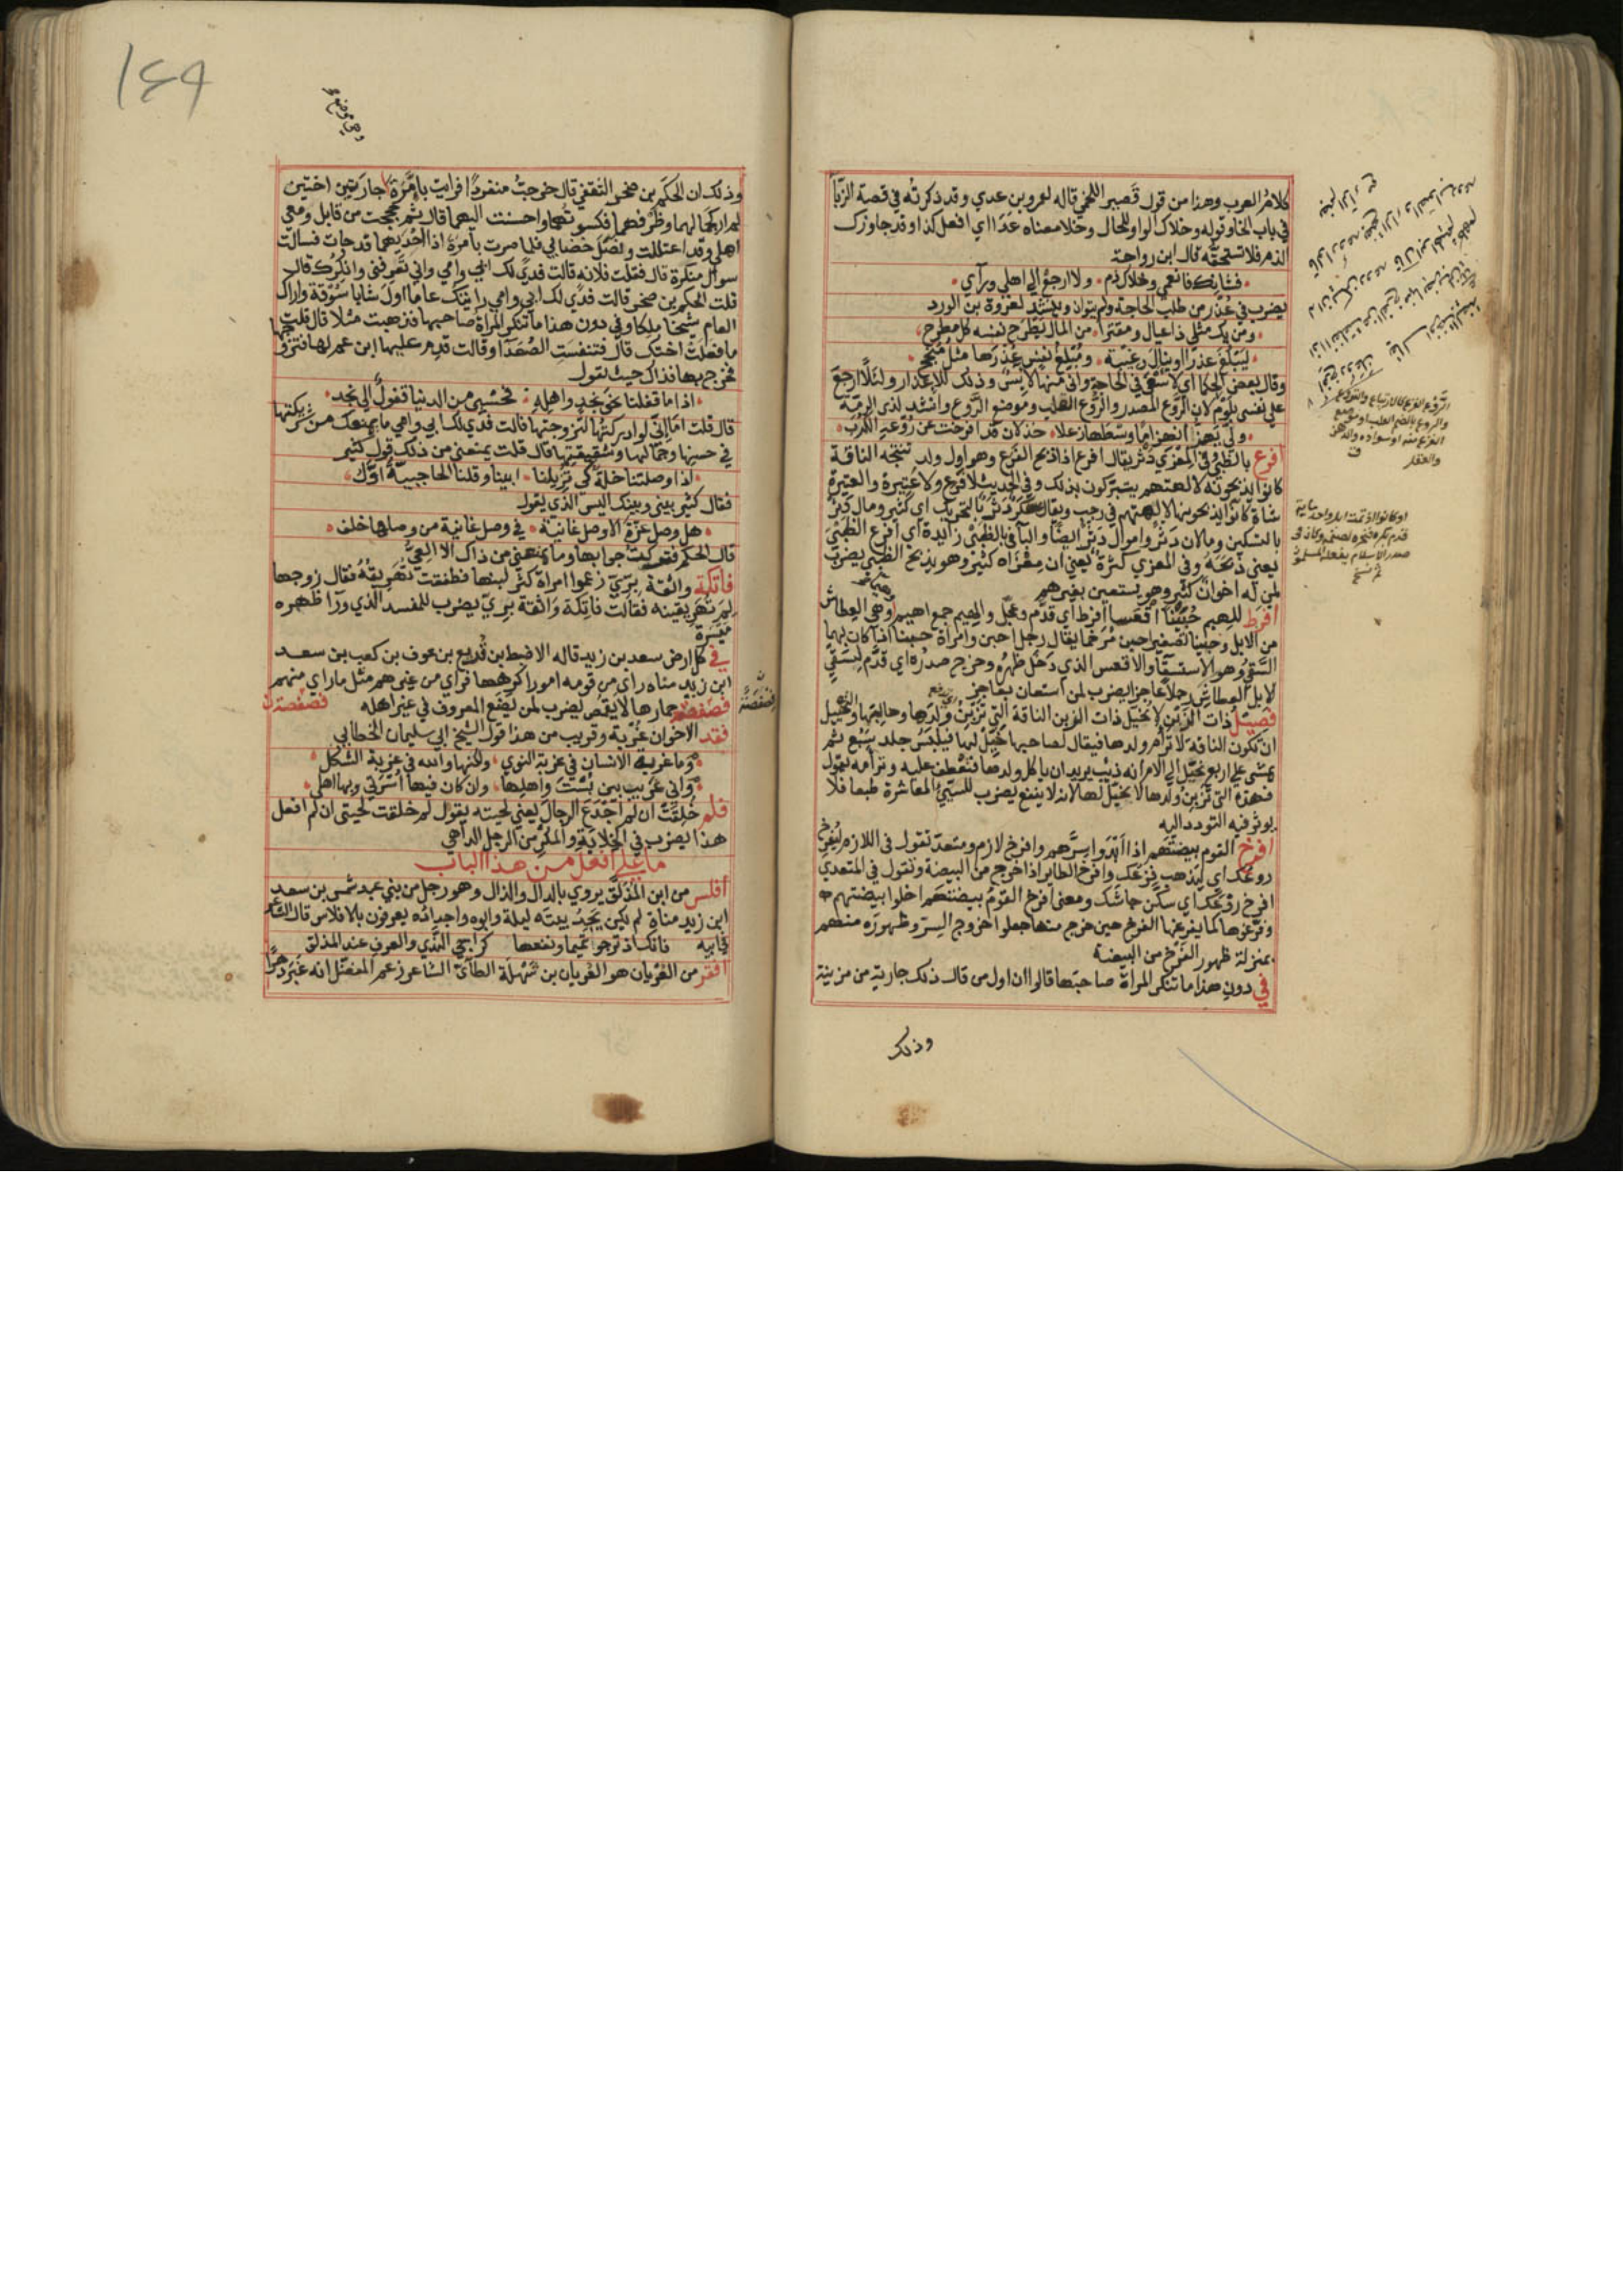 كلام العرب وهذا من قول قصير اللخمي قاله لعمرو بن عدي وقد ذكرته في قصة الزبا
في باب الخا وقوله وخلاك الواو للحال وخلا معناه عدا اي افعل كذا وقد جاوزك
الذم فلا تستحقه قال ابن رواحة
فشانك فانعمي وخلاك ذم ولا ارجع الى اهلي ورآي
يضرب في عذر من طلب الحاجة ولم يتوان وينشد لعروة بن الورد
ومن يك مثلي ذا عيال ومقترا من المال يطرح نفسه كل مطرح
ليبلغ عذرا او ينال رغيبة ومبلغ نفس عذرها مثل منجح
وقال بعض الحكما اي لاسعى في الحاجة واني منها لايس وذلك للاعذار ولئلا ارجع
على نفسي بلوم لان الروع المصدر والروع القلب وموضع الروع وانشد لذي الرمة
ولى يهز انهزاما وسطها زعلا جذلان قد افرخت عن روعه الكرب
افرع بالظبي وفي المعزي دثر يقال افرع اذا ذبح الفرع وهو اول ولد تنتجه الناقة
كانوا يذبحونه لالهتهم يتبركون بذلك وفي الحديث لا فرع ولا عتيرة والعتيرة
شاة كانوا يذبحونها لالهتهم في رجب ويقال عكر دثر بالتحريك اي كثير ومال دثر
بالتسكين ومالان دثر واموال دثر ايضا والبا في بالظبي زايدة اي افرع الظبي
يعني ذبحه وفي المعزي كثرة يعني ان معزاه كثير وهو يذبح الظبي يضرب
لمن له اخوان كثير وهو يستعين بغيرهم
افرط للهيم حبينا اقعسا افرط اي قدم وعجل والهيم جمع اهيم وهي العطاش
من الابل وحبينا تصغير احبن مرخما يقال رجل احبن وامراة حبينا اذا كان بهما
السقي وهو الاستسقا والاقعس الذي دخل ظهره وخرج صدره اي قدم ليسقي
لابل العطاش رجلا عاجزا يضرب لمن استعان بعاجز
فصيل ذات الزبن لا يخيل ذات الزبن الناقة التي تزبن ولدها وحالبها والتخييل
ان تكون الناقة لا ترأم ولدها فيقال لصاحبها خيل لها فيلبس جلد سبع ثم
يمشي على اربع يخيل الى الام انه ذيب يريد ان ياكل ولدها فتعطف عليه وترأمه يقول
فهذه التي تزبن ولدها لا يخيل لها لانه لا ينفع يضرب للسيئ المعاشرة طبعا فلا
يوثر فيه التودد اليه
افرخ القوم بيضتهم اذا ابدوا سرهم وافرخ لازم ومتعد تقول في اللازم ليفرخ
روعك اي ليذهب فزعك وافرخ الطاير اذا خرج من البيضة وتقول في المتعدي
افرخ روعك اي سكن جاشك ومعنى افرخ القوم بيضتهم اخلوا بيضتهم
وفرغوها كما يفرغها الفرخ حين خرج منها جعلوا خروج السر وظهوره منهم
بمنزلة ظهور الفرخ من البيضة
في دون هذا ما تنكر المراة صاحبتها قالوا ان اول من قال ذلك جارية من مزينة
وذلك
الروع الفزع كالارتياع والتروع
والروع بالضم القلب او موضع
الفزع منه او سواده والذهن
والعقل
ق
وذلك ان الحكم بن صخر الثقفي قال خرجت منفردا فرايت بامرة جاريتين اختين
لم ار كجمالهما وظرفهما فكسوتهما واحسنت اليهما قال ثم حججت من قابل ومعي
اهلي وقد اعتللت ونصل خضابي فلما صرت بامرة اذا احديهما قد جات فسالت
سوال منكرة قال فقلت فلانه قالت فدي لك ابي وامي واني تعرفني وانكرك قال
قلت الحكم بن صخر قالت فدي لك ابي وامي رايتك عاما اول شابا سوقة واراك
العام شيخا ملكا وفي دون هذا ما تنكر المراة صاحبها فذهبت مثلا قال قلت
ما فعلت اختك قال فتنفست الصعدا وقالت قدم عليها ابن عم لها فتزوجها
فخرج بها فذاك حيث تقول
اذا ما قفلنا نحو نجد واهله فحسبي من الدنيا قفول الى نجد
قال قلت اما اني لو ادركتها لتزوجتها قالت فدي لك ابي وامي ما يمنعك من شريكتها
في حسنها وجمالها وشقيقتها قال قلت يمنعني من ذلك قول كثير
اذا وصلتنا خلة كي تزيلنا ابينا وقلنا الحاجبية اول
فقال كثير بيني وبينك اليس الذي يقول
هل وصل عزة الا وصل غانية في وصل غانية من وصلها خلف
قال الحكم فتركت جوابها وما يمنعني من ذاك الا العي
فاتكة واثقة بري زعموا امراة كثر لبنها فطفقت تهريقه فقال زوجها
لم تهريقينه فقالت فاتكة واثقة بري يضرب للمفسد الذي ورآ ظهره
ميسرة
في كل ارض سعد بن زيد قاله الاضبط بن قريع بن عوف بن كعب بن سعد
ابن زيد مناه راى من قومه امورا كرهها فراى من غيرهم مثل ما راى منهم
فصفصة حمارها لا يقمص يضرب لمن يضع المعروف في غير اهله فصفصة
فقد الاخوان غربة وقريب من هذا قول الشيخ ابي سليمان الخطابي
وما غربة الانسان في غربة النوي ولكنها والله في غربة الشكل
واني غريب بين بست واهلها وان كان فيها اسرتي وبها اهلي
فلم خلقت ان لم اخدع الرجال يعني لحيته يقول لم خلقت لحيتي ان لم افعل
هذا يضرب في الخلابة والمكر من الرجل الداهي
ما على افعل من هذا الباب
افلس من ابن المذلق يروي بالدال والذال وهو رجل من بني عبد شمس بن سعد
ابن زيد مناة لم يكن يجد بيته ليلة وابوه واجداده يعرفون بالافلاس قال الشاعر
في ابيه فانك اذ ترجو تميما ونفعها كراجي الندي والعرف عند المذلق
افقر من العريان هو العريان بن شهلة الطائي الشاعر زعم المفضل انه غبر دهرا